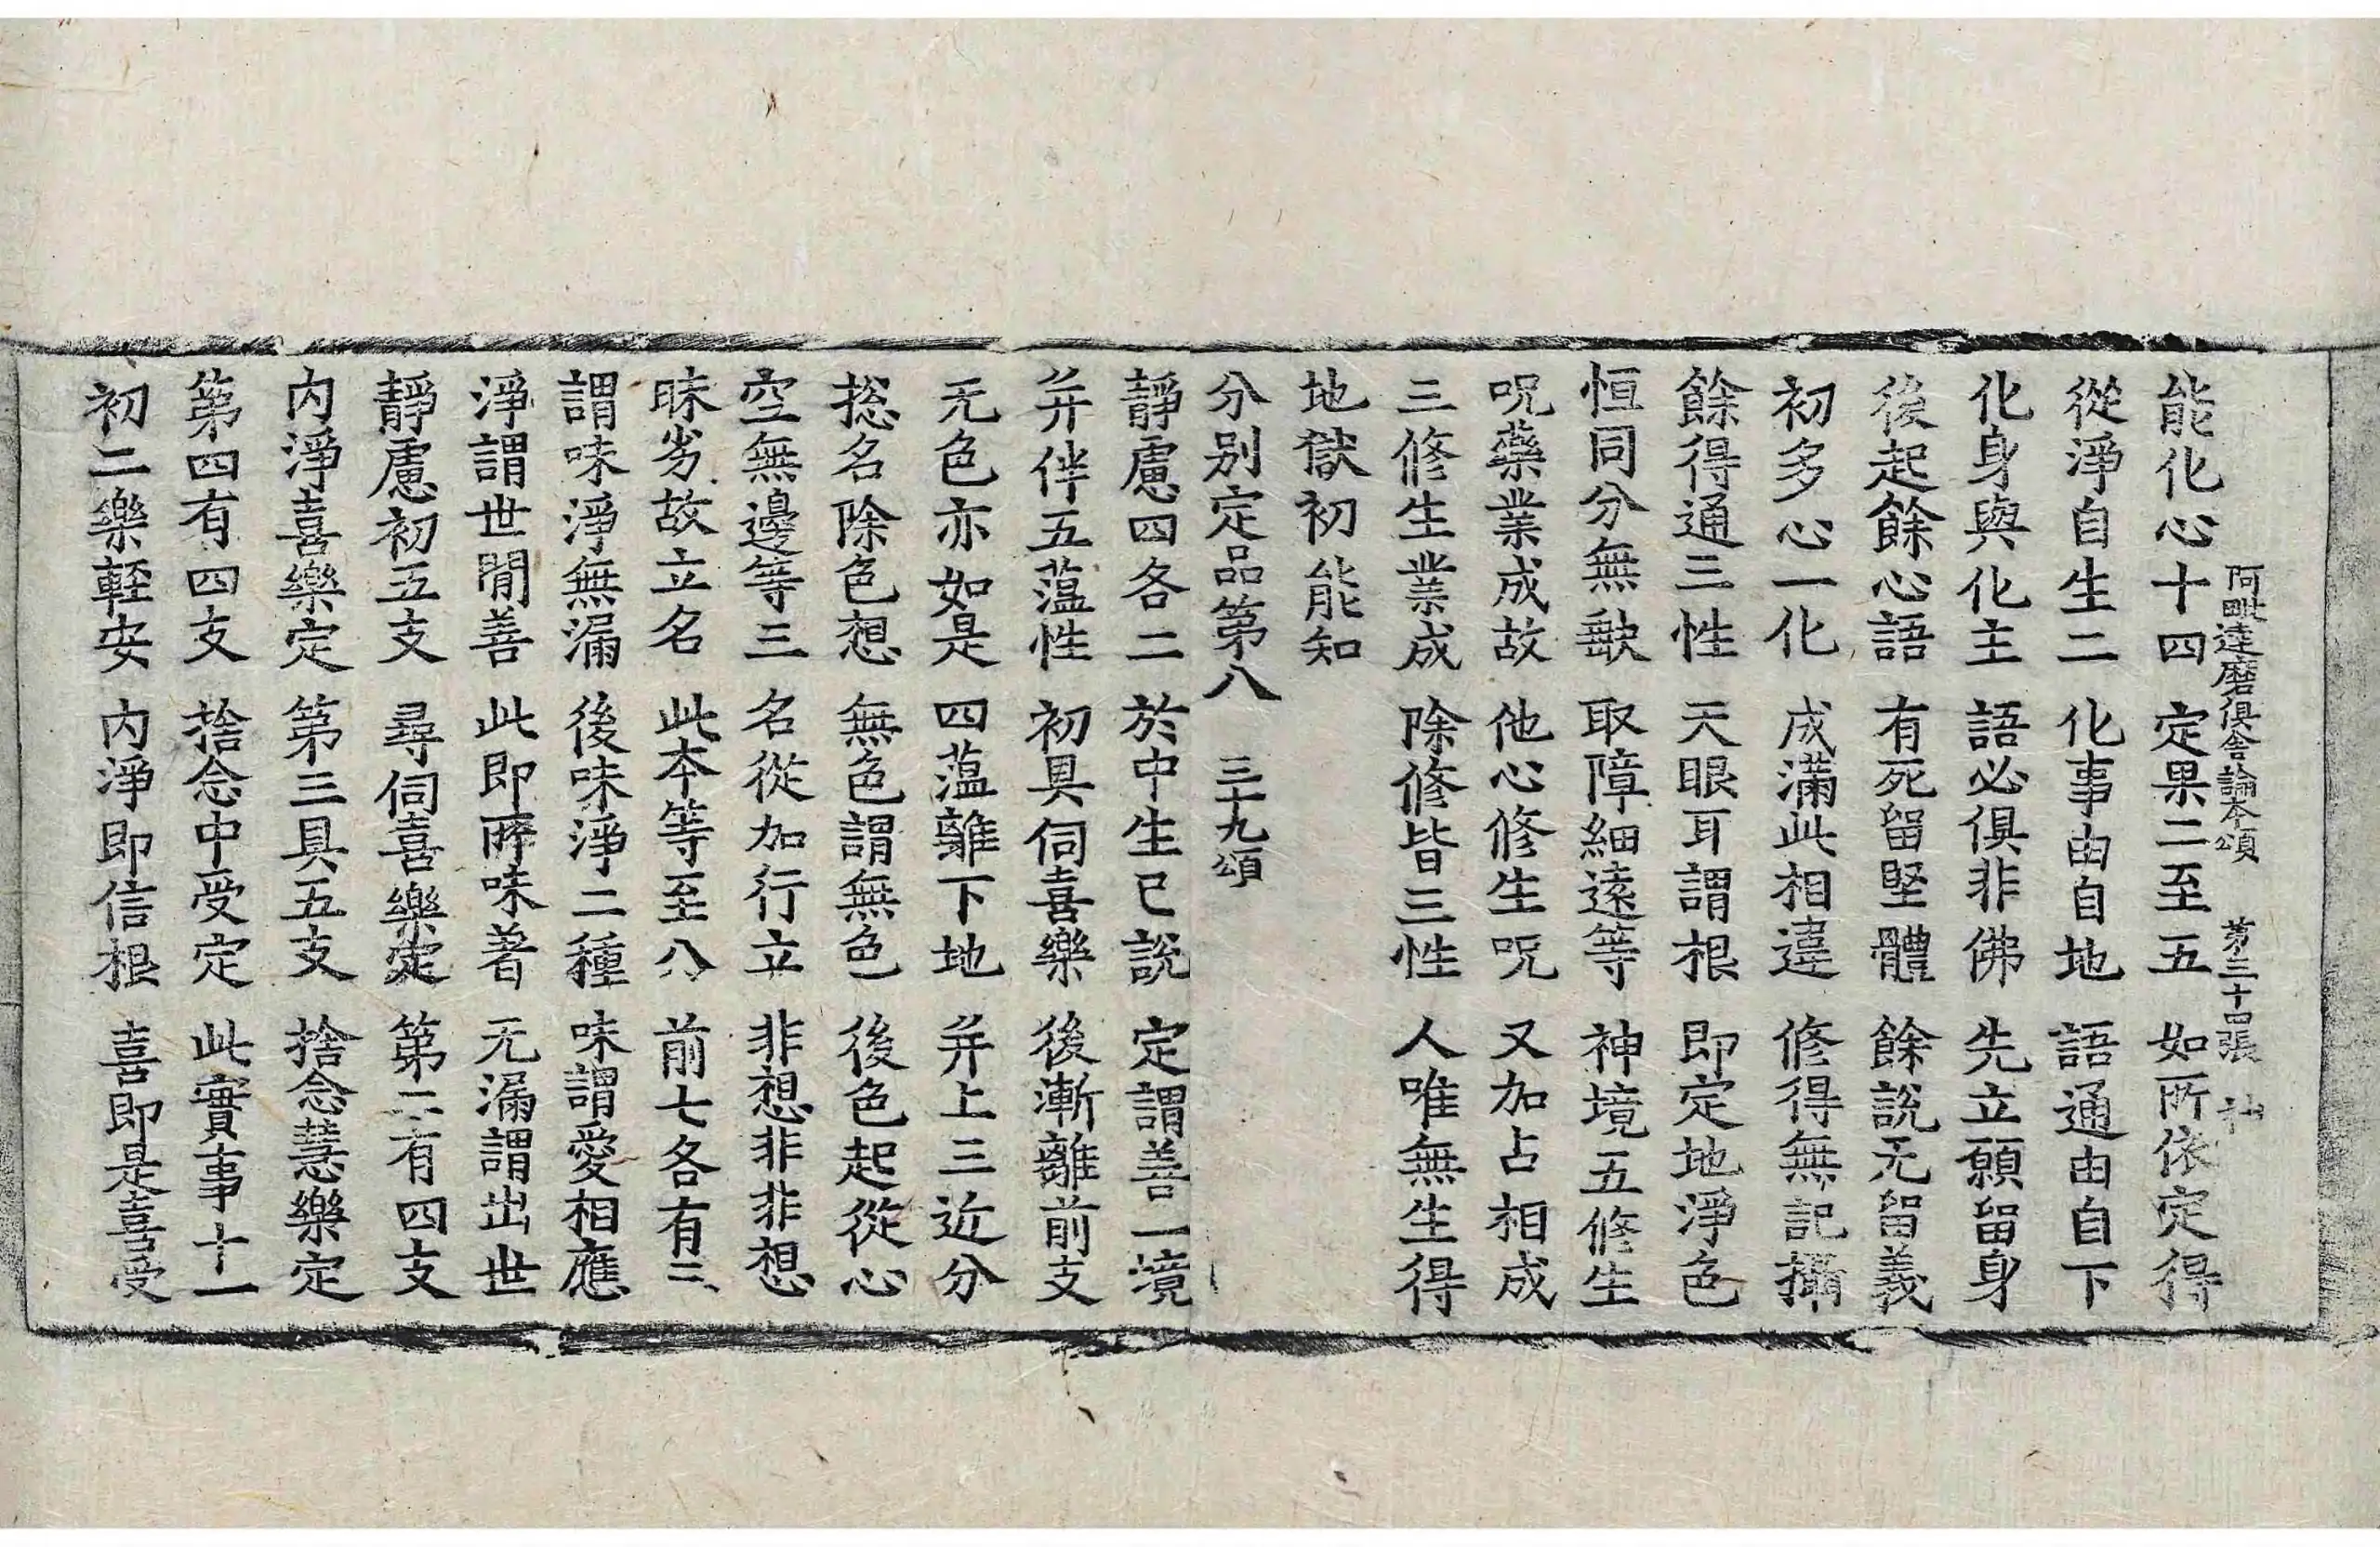 阿毗達磨俱舍論本頌 第三十四張 神
能化心十四 定果二至五 如所依定得
從淨自生二 化事由自地 語通由自下
化身與化主 語必俱非佛 先立願留身
後起餘心語 有死留堅體 餘說无留義
初多心一化 成滿此相違 修得無記攝
餘得通三性 天眼耳謂根 即定地淨色
恒同分無缺 取障細遠等 神境五修生
呪藥業成故 他心修生呪 又加占相成
三修生業成 除修皆三性 人唯無生得
地獄初能知
分別定品第八 三十九頌
靜慮四各二 於中生已說 定謂善一境
并伴五蘊性 初具伺喜樂 後漸離前支
无色亦如是 四蘊離下地 并上三近分
捴名除色想 無色謂無色 後色起從心
空無邊等三 名從加行立 非想非非想
昧劣故立名 此本等至八 前七各有三
謂味淨無漏 後味淨二種 味謂愛相應
淨謂世間善 此即所味著 无漏謂出世
靜慮初五支 尋伺喜樂定 第二有四支
內淨喜樂定 第三具五支 捨念慧樂定
第四有四支 捨念中受定 此實事十一
初二樂輕安 內淨即信根 喜即是喜受